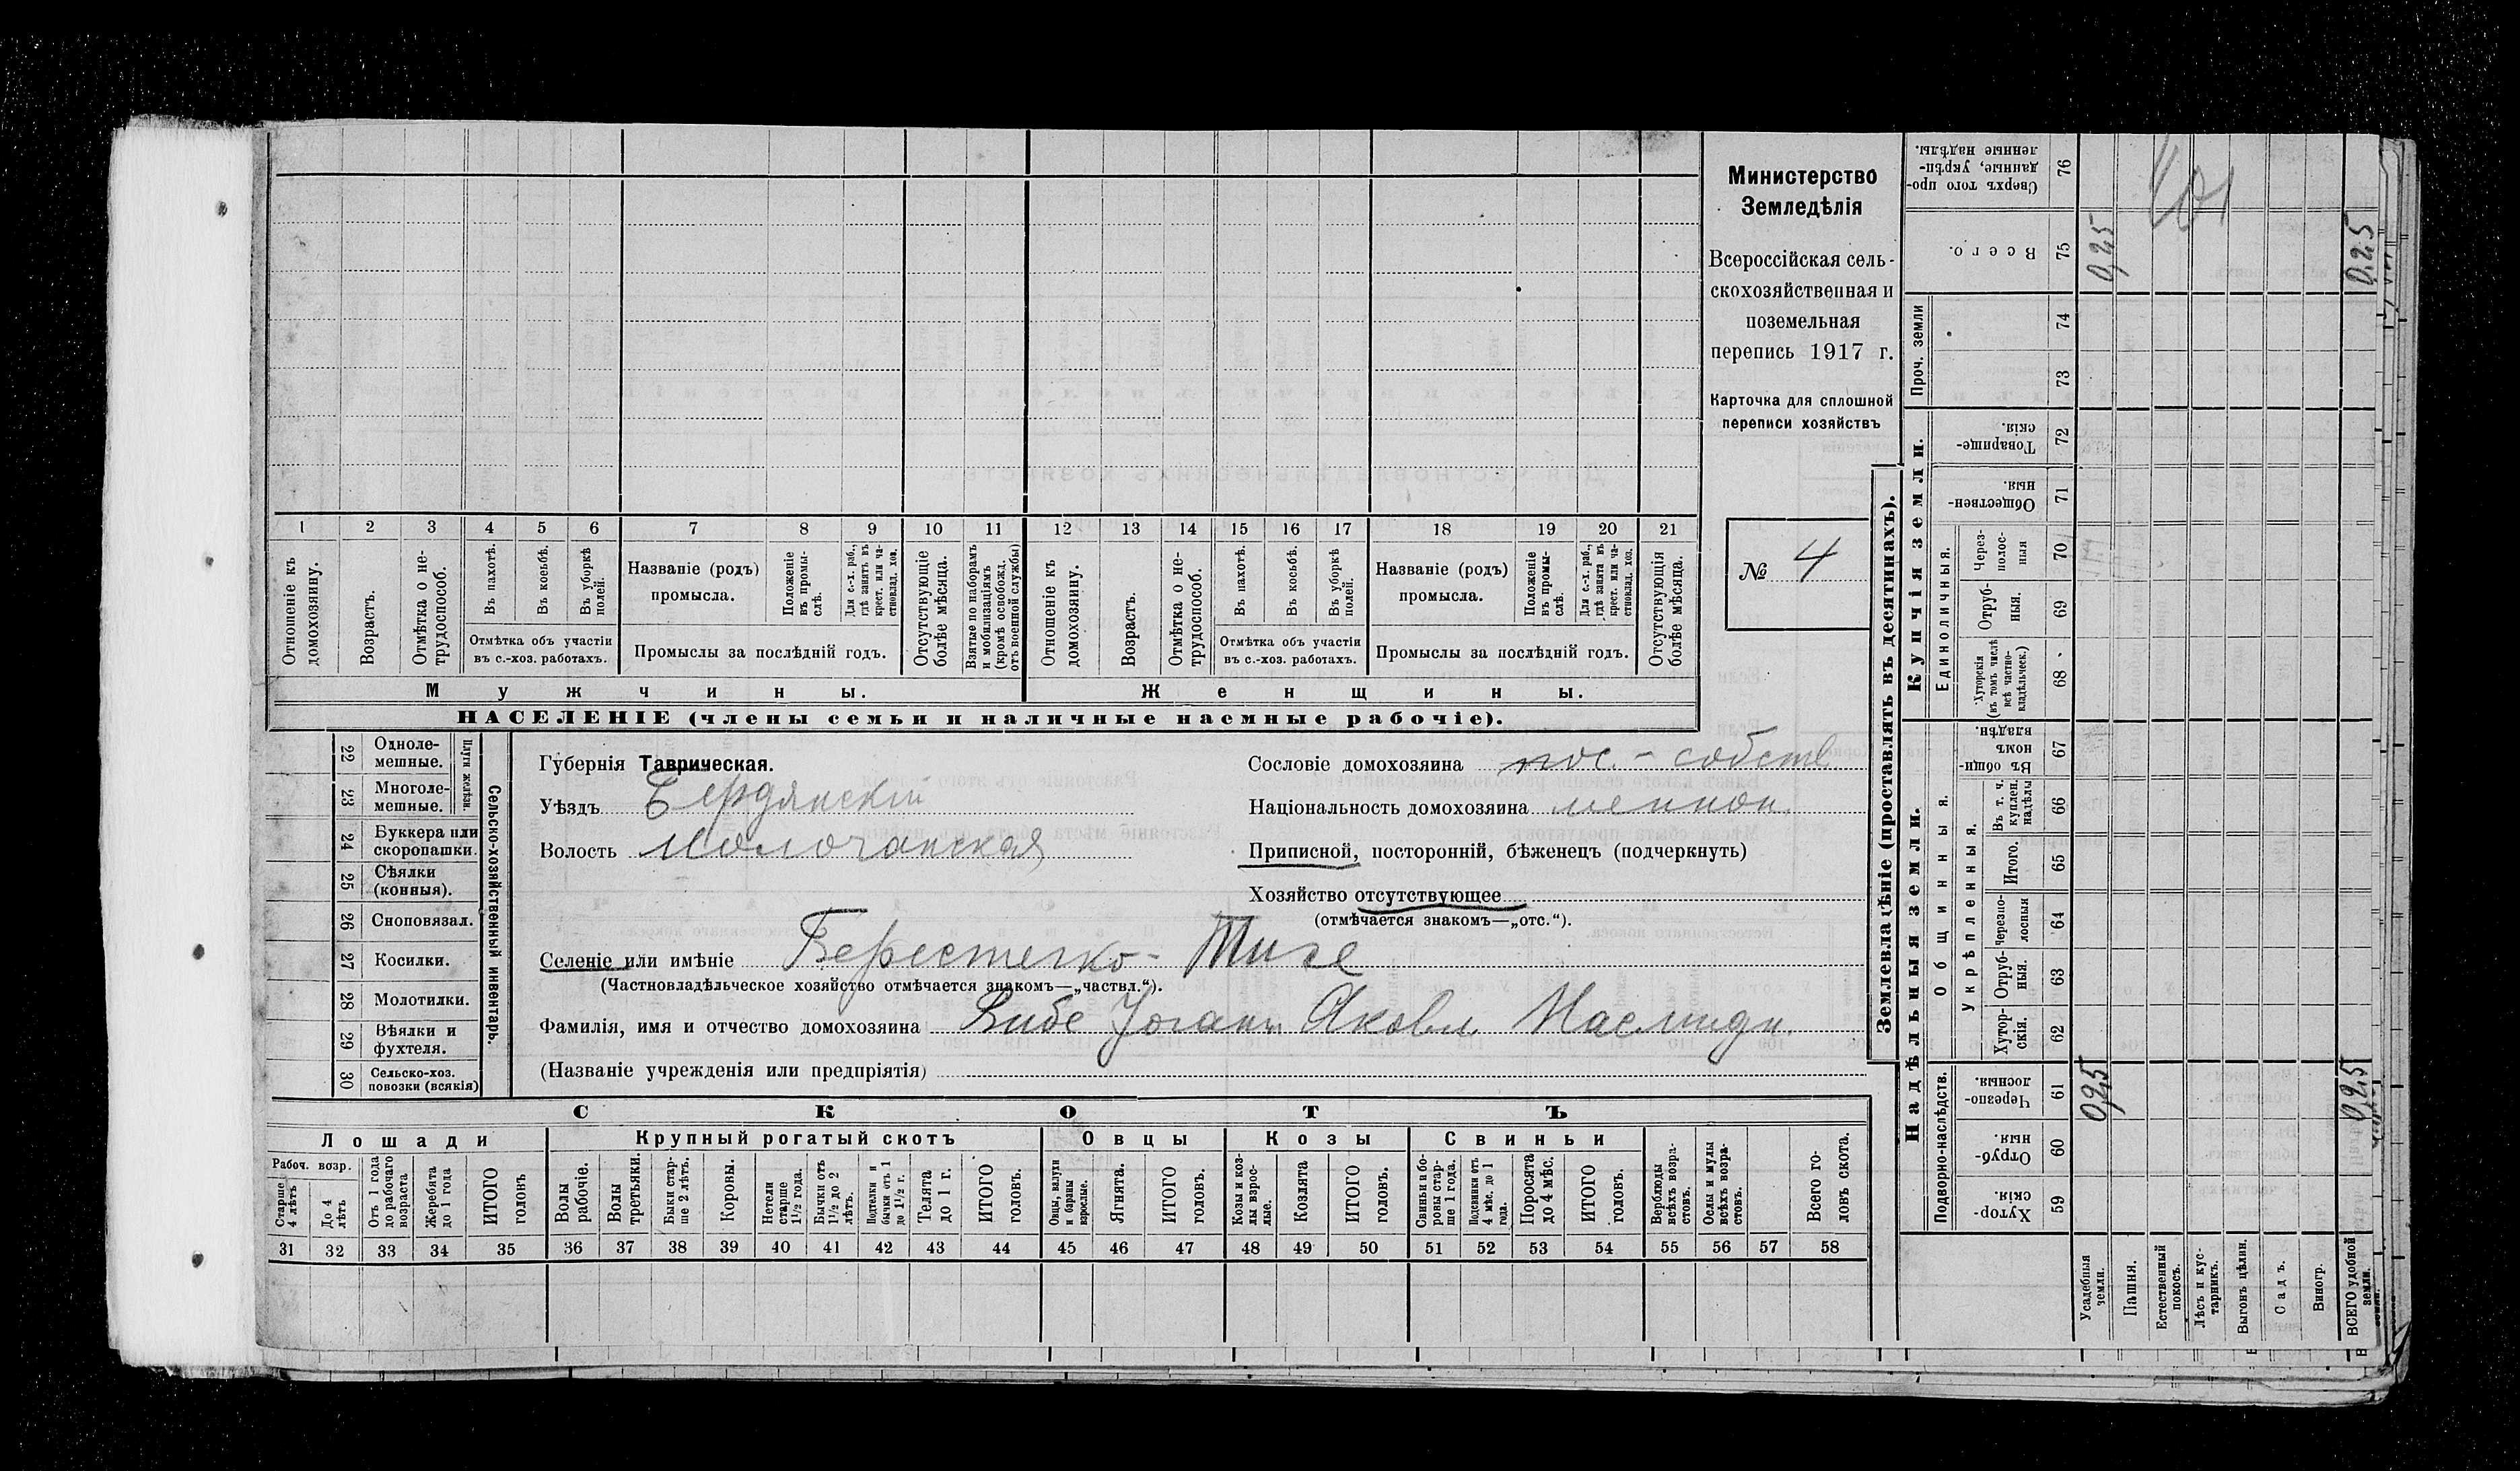 Министерство
Земледѣлія
Всероссійская сель-
скохозяйственная и
поземельная
перепись 1917 г.
Карточка для сплошной
переписи хозяйствъ
№ 4
1 2 3 4 5 6 7 8 9 10 11 12 13 14 15 16 17 18 19 20 21
Отношеніе къ домохозяину.
Возрастъ.
Отмѣтка о не-трудоспособ.
Въ пахотѣ.
Въ косьбѣ.
Въ уборкѣ полей.
Отмѣтка объ участіи
въ с.-хоз. работахъ.
Названіе (родъ)
промысла.
Положеніе въ промы-слѣ.
Для с.-х. раб., гдѣ занятъ въ крест. или ча-стновлад. хоз.
Промыслы за послѣдній годъ.
Отсутствующіе болѣе мѣсяца.
Взятые по наборамъ и мобилизаціямъ (кромѣ освобожд. отъ военной службы)
Отношеніе къ домохозяину.
Возрастъ.
Отмѣтка о не-трудоспособ.
Въ пахотѣ.
Въ косьбѣ.
Въ уборкѣ полей.
Отмѣтка объ участіи
въ с.-хоз. работахъ.
Названіе (родъ)
промысла.
Положеніе въ промы-слѣ.
Для с.-х. раб., гдѣ занята въ крест. или ча-стновлад. хоз.
Промыслы за послѣдній годъ.
Отсутствующія болѣе мѣсяца.
Мужчины.
Женщины.
НАСЕЛЕНІЕ (члены семьи и наличные наемные рабочіе).
22 Одноле-мешные.
23 Многоле-мешные.
Плуги желѣз.
24 Буккера или скоропашки.
25 Сѣялки (конныя).
26 Сноповязал.
27 Косилки.
28 Молотилки.
29 Вѣялки и фухтеля.
30 Сельско-хоз. повозки (всякія)
Сельско-хозяйственный инвентарь.
Губернія Таврическая.
Уѣздъ Бердянскій
Волость Молочанская
Сословіе домохозяина пос.-собств.
Національность домохозяина меннон.
Приписной, посторонній, бѣженецъ (подчеркнуть)
Хозяйство отсутствующее
(отмѣчается знакомъ—„отс.“).
Селеніе или имѣніе Берестечко- Тиге
(Частновладѣльческое хозяйство отмѣчается знакомъ—„частвл.“).
Фамилія, имя и отчество домохозяина Вибе Іоганн Яковл.
(Названіе учрежденія или предпріятія)
СКОТЪ
Лошади
Крупный рогатый скотъ
Овцы
Козы
Свиньи
Рабоч. возр.
Старше 4 лѣтъ
До 4 лѣтъ
Отъ 1 года до рабочаго возраста
Жеребята до 1 года
ИТОГО головъ
Волы рабочіе.
Волы третьяки.
Быки стар-ше 2 лѣтъ.
Коровы.
Нетели старше 1½ года.
Бычки отъ 1½ до 2 лѣтъ.
Подтелки и бычки отъ 1 до 1½ г.
Телята до 1 г.
ИТОГО головъ.
Овцы, валухи и бараны взрослые.
Ягнята.
ИТОГО головъ.
Козы и коз-лы взрос-лые.
Козлята
ИТОГО головъ.
Свиньи и бо-ровы стар-ше 1 года.
Подсвинки отъ 4 мѣс. до 1 года.
Поросята до 4 мѣс.
ИТОГО головъ.
Верблюды всѣхъ возра-стовъ.
Ослы и мулы всѣхъ возра-стовъ.
Всего го-ловъ скота.
31 32 33 34 35 36 37 38 39 40 41 42 43 44 45 46 47 48 49 50 51 52 53 54 55 56 57 58
Землевладѣніе (проставлять въ десятинахъ).
Купчія земли.
Надѣльныя земли.
Сверхъ того про-данные, укрѣп-ленные надѣлы. 76
Всего. 75
0,25
Проч. земли
74
73
Товарище-скія. 72
Обществен-ныя. 71
Единоличныя.
Через-полос-ныя 70
Отруб-ныя. 69
Хуторскія (въ томъ числѣ всѣ частно-владѣльческ.) 68
Въ общи-номъ владѣн. 67
Общинныя.
Укрѣпленныя.
Въ т. ч. куплен. надѣлы 66
Итого. 65
Черезпо-лосныя 64
Отруб-ныя. 63
Хутор-скія. 62
Подворно-наслѣдств.
Черезпо-лосныя. 61
0,25
Отруб-ныя. 60
Хутор-скія. 59
Усадебныя земли.
Пашня.
Естественный покосъ.
Лѣсъ и кус-тарникъ.
Выгонъ цѣлин.
Садъ.
Виногр.
ВСЕГО удобной земли.
0,25
0,25